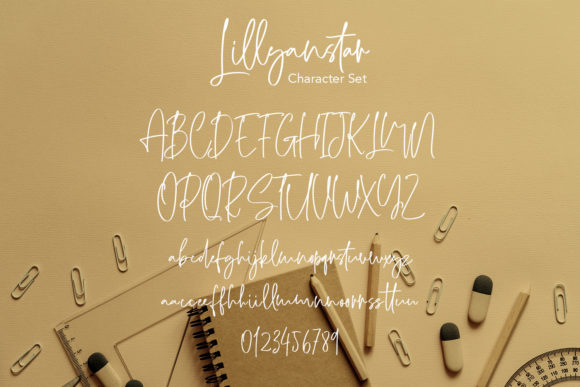 Lillyanstar
Character Set
ABCDEFGHIJKLMN
OPQRSTUVWXYZ
abcdefghijklmnopqrstuvwxyz
0123456789